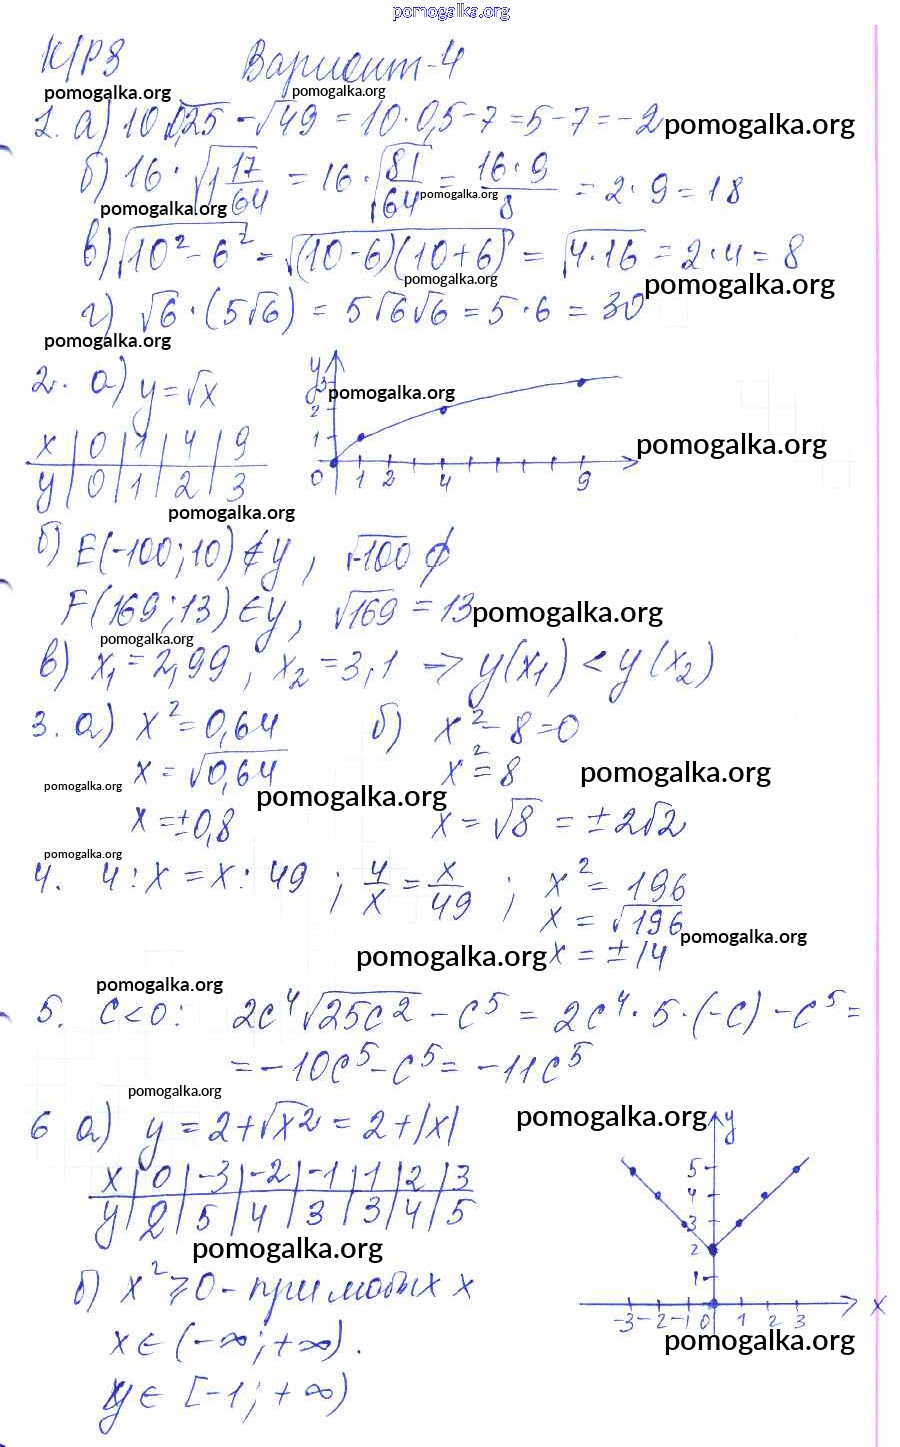 pomogalka.org
К/Р 3 Вариант-4
pomogalka.org pomogalka.org
1. а) 10√0,25 - √49 = 10·0,5-7 = 5-7 = -2 pomogalka.org
б) 16·√1 17/64 = 16·√81/64 = 16·9/8 = 2·9 = 18
pomogalka.org pomogalka.org
в) √10²-6² = √(10-6)(10+6) = √4·16 = 2·4 = 8
pomogalka.org pomogalka.org
г) √6·(5√6) = 5√6√6 = 5·6 = 30
pomogalka.org
2. а) y=√x
x | 0 | 1 | 4 | 9
y | 0 | 1 | 2 | 3
y
3
2
1
0 1 2 4 9
pomogalka.org
pomogalka.org
pomogalka.org
б) E(-100;10)∉y, √-100 ∅
F(169;13)∈y, √169 = 13 pomogalka.org
pomogalka.org
в) x₁=2,99, x₂=3,1 → y(x₁) < y(x₂)
3. а) x²=0,64 б) x²-8=0
x=√0,64 x²=8
pomogalka.org pomogalka.org pomogalka.org
x=±0,8 x=√8 = ±2√2
pomogalka.org
4. 4:x = x:49; 4/x = x/49; x² = 196
x = √196
pomogalka.org
pomogalka.org x = ±14
pomogalka.org
5. c<0: 2c⁴√25c² - c⁵ = 2c⁴·5·(-c) - c⁵ =
= -10c⁵ - c⁵ = -11c⁵
pomogalka.org
6 а) y = 2+√x² = 2+|x|
x | 0 | -3 | -2 | -1 | 1 | 2 | 3
y | 2 | 5 | 4 | 3 | 3 | 4 | 5
pomogalka.org
pomogalka.org
y
5
4
3
2
1
-3 -2 -1 0 1 2 3 x
pomogalka.org
б) x²⩾0 - при любых x
x∈(-∞;+∞).
y∈[-1;+∞)